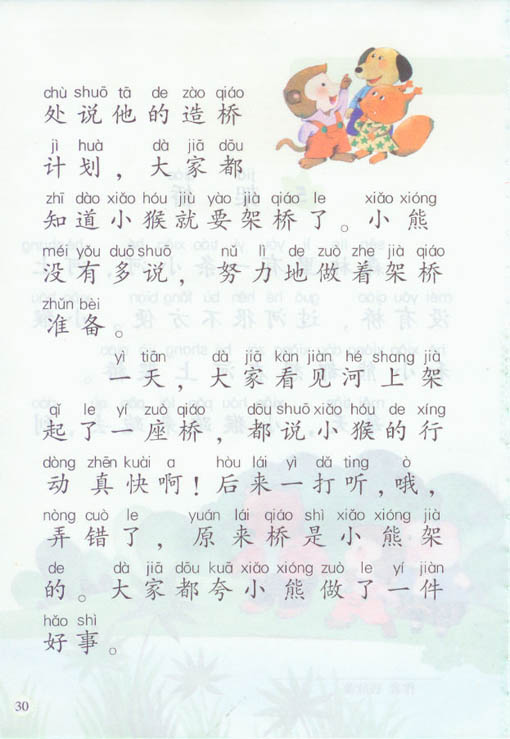 chù shuō tā de zào qiáo
处说他的造桥
jì huà dà jiā dōu
计划，大家都
zhī dào xiǎo hóu jiù yào jià qiáo le xiǎo xióng
知道小猴就要架桥了。小熊
méi yǒu duō shuō nǔ lì de zuò zhe jià qiáo
没有多说，努力地做着架桥
zhǔn bèi
准备。
yì tiān dà jiā kàn jiàn hé shang jià
一天，大家看见河上架
qǐ le yí zuò qiáo dōu shuō xiǎo hóu de xíng
起了一座桥，都说小猴的行
dòng zhēn kuài a hòu lái yì dǎ ting ò
动真快啊！后来一打听，哦，
nòng cuò le yuán lái qiáo shì xiǎo xióng jià
弄错了，原来桥是小熊架
de dà jiā dōu kuā xiǎo xióng zuò le yí jiàn
的。大家都夸小熊做了一件
hǎo shì
好事。
30